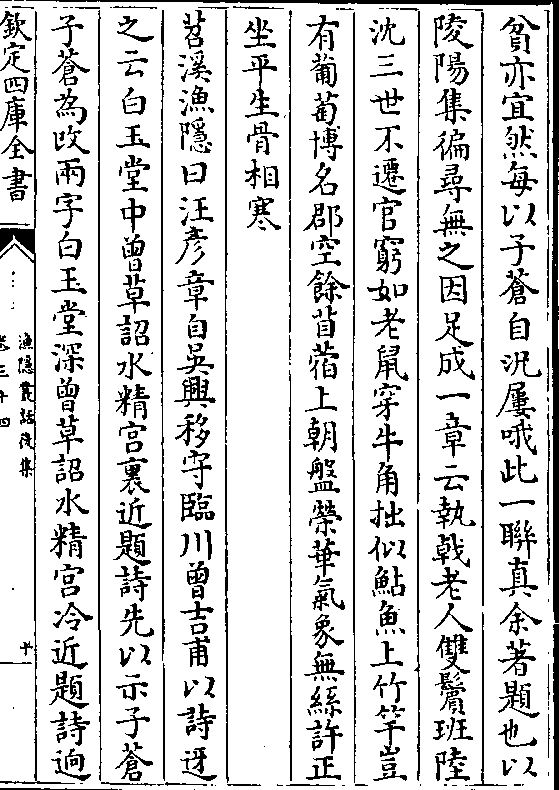 貧亦宜然每以子蒼自況屢哦此一聯真余著題也以
陵陽集徧尋無之因足成一章云執戟老人雙鬢班陸
沈三世不遷官窮如老鼠穿牛角拙似鮎魚上竹竿豈
有葡萄博名郡空餘苜蓿上朝盤榮華氣象無絲許正
坐平生骨相寒
苕溪漁隱曰汪彦章自吳興移守臨川曾吉甫以詩迓
之云白玉堂中曾草詔水精宮裏近題詩先以示子蒼
子蒼為改兩字白玉堂深曾草詔水精宮冷近題詩逈
欽定四庫全書
漁隱叢話後集
卷三十四
十